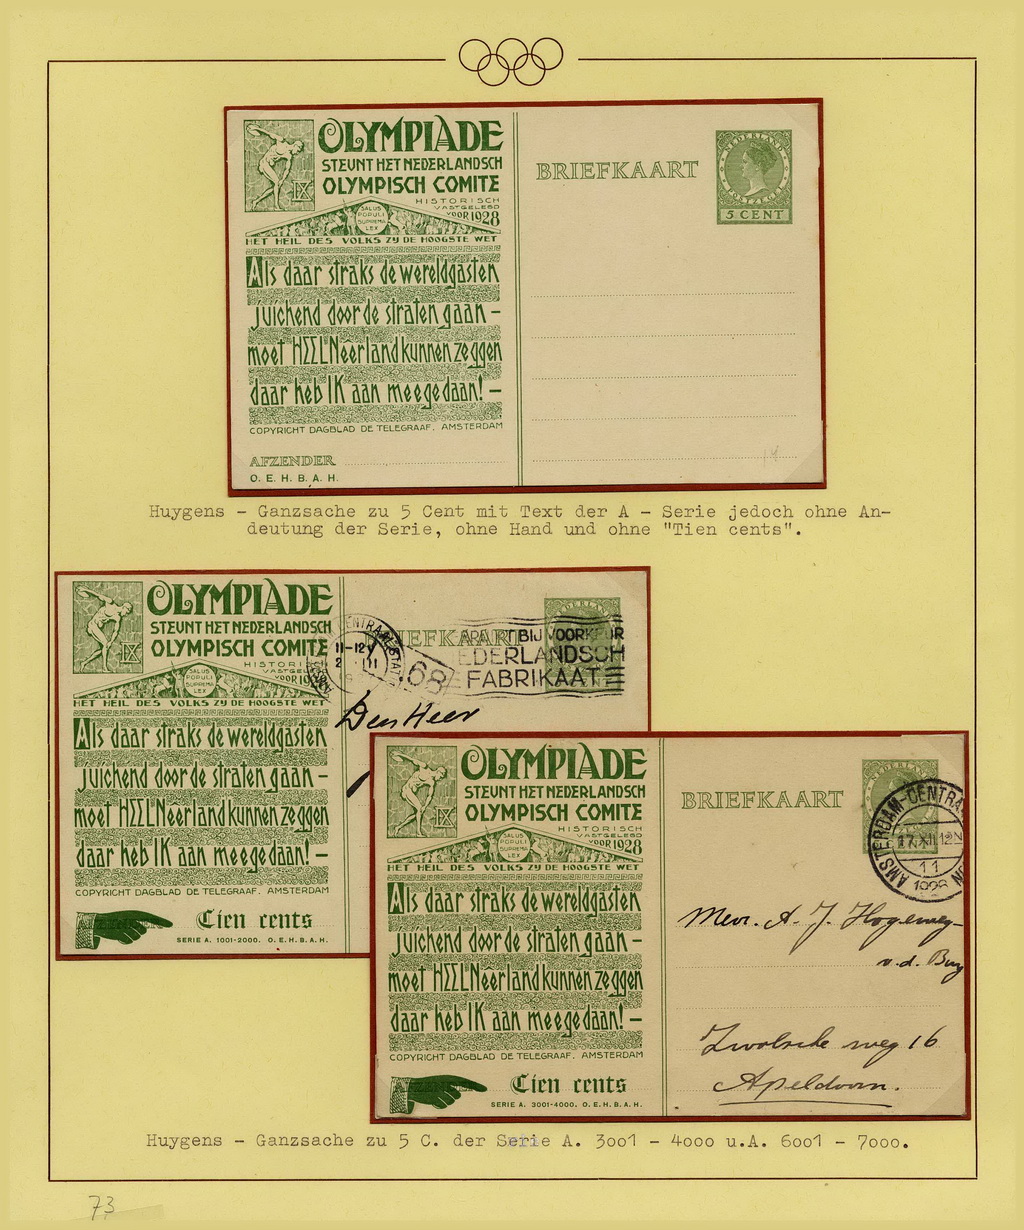 OLYMPIADE
STEUNT HET NEDERLANDSCH
OLYMPISCH COMITE
IX
HISTORISCH
VASTGELEGD
VOOR 1928
SALUS
POPULI
SUPREMA
LEX
HET HEIL DES VOLKS ZY DE HOOGSTE WET
Als daar straks de wereldgasten
juichend door de straten gaan –
moet HEEL Neêrland kunnen zeggen
daar heb IK aan meegedaan! –
COPYRIGHT DAGBLAD DE TELEGRAAF. AMSTERDAM
AFZENDER
O. E. H. B. A. H.
BRIEFKAART
NEDERLAND
POSTZEGEL
5 CENT
Huygens - Ganzsache zu 5 Cent mit Text der A - Serie jedoch ohne An-
deutung der Serie, ohne Hand und ohne "Tien cents".
OLYMPIADE
STEUNT HET NEDERLANDSCH
OLYMPISCH COMITE
HISTORI
VOOR
SALUS
POPULI
SUPREMA
LEX
HET HEIL DES VOLKS ZY DE HOOGSTE WET
Als daar straks de wereldgasten
juichend door de straten gaan –
moet HEEL Neêrland kunnen zeggen
daar heb IK aan meegedaan! –
COPYRIGHT DAGBLAD DE TELEGRAAF. AMSTERDAM
Tien cents
SERIE A. 1001-2000. O. E. H. B. A. H.
11-12
68
BIJ VOORKEUR
EDERLANDSCH
FABRIKAAT
Den Heer
OLYMPIADE
STEUNT HET NEDERLANDSCH
OLYMPISCH COMITE
IX
HISTORISCH
VASTGELEGD
VOOR 1928
SALUS
POPULI
SUPREMA
LEX
HET HEIL DES VOLKS ZY DE HOOGSTE WET
Als daar straks de wereldgasten
juichend door de straten gaan –
moet HEEL Neêrland kunnen zeggen
daar heb IK aan meegedaan! –
COPYRIGHT DAGBLAD DE TELEGRAAF. AMSTERDAM
Tien cents
SERIE A. 3001-4000. O. E. H. B. A. H.
BRIEFKAART
AMSTERDAM-CENTRA
17.XII 12N
11
Mevr. A. J. Hogeweg-
v. d. Burg
Zwolsche weg 16
Apeldoorn.
Huygens - Ganzsache zu 5 C. der Serie A. 3oo1 - 4ooo u.A. 6oo1 - 7ooo.
73